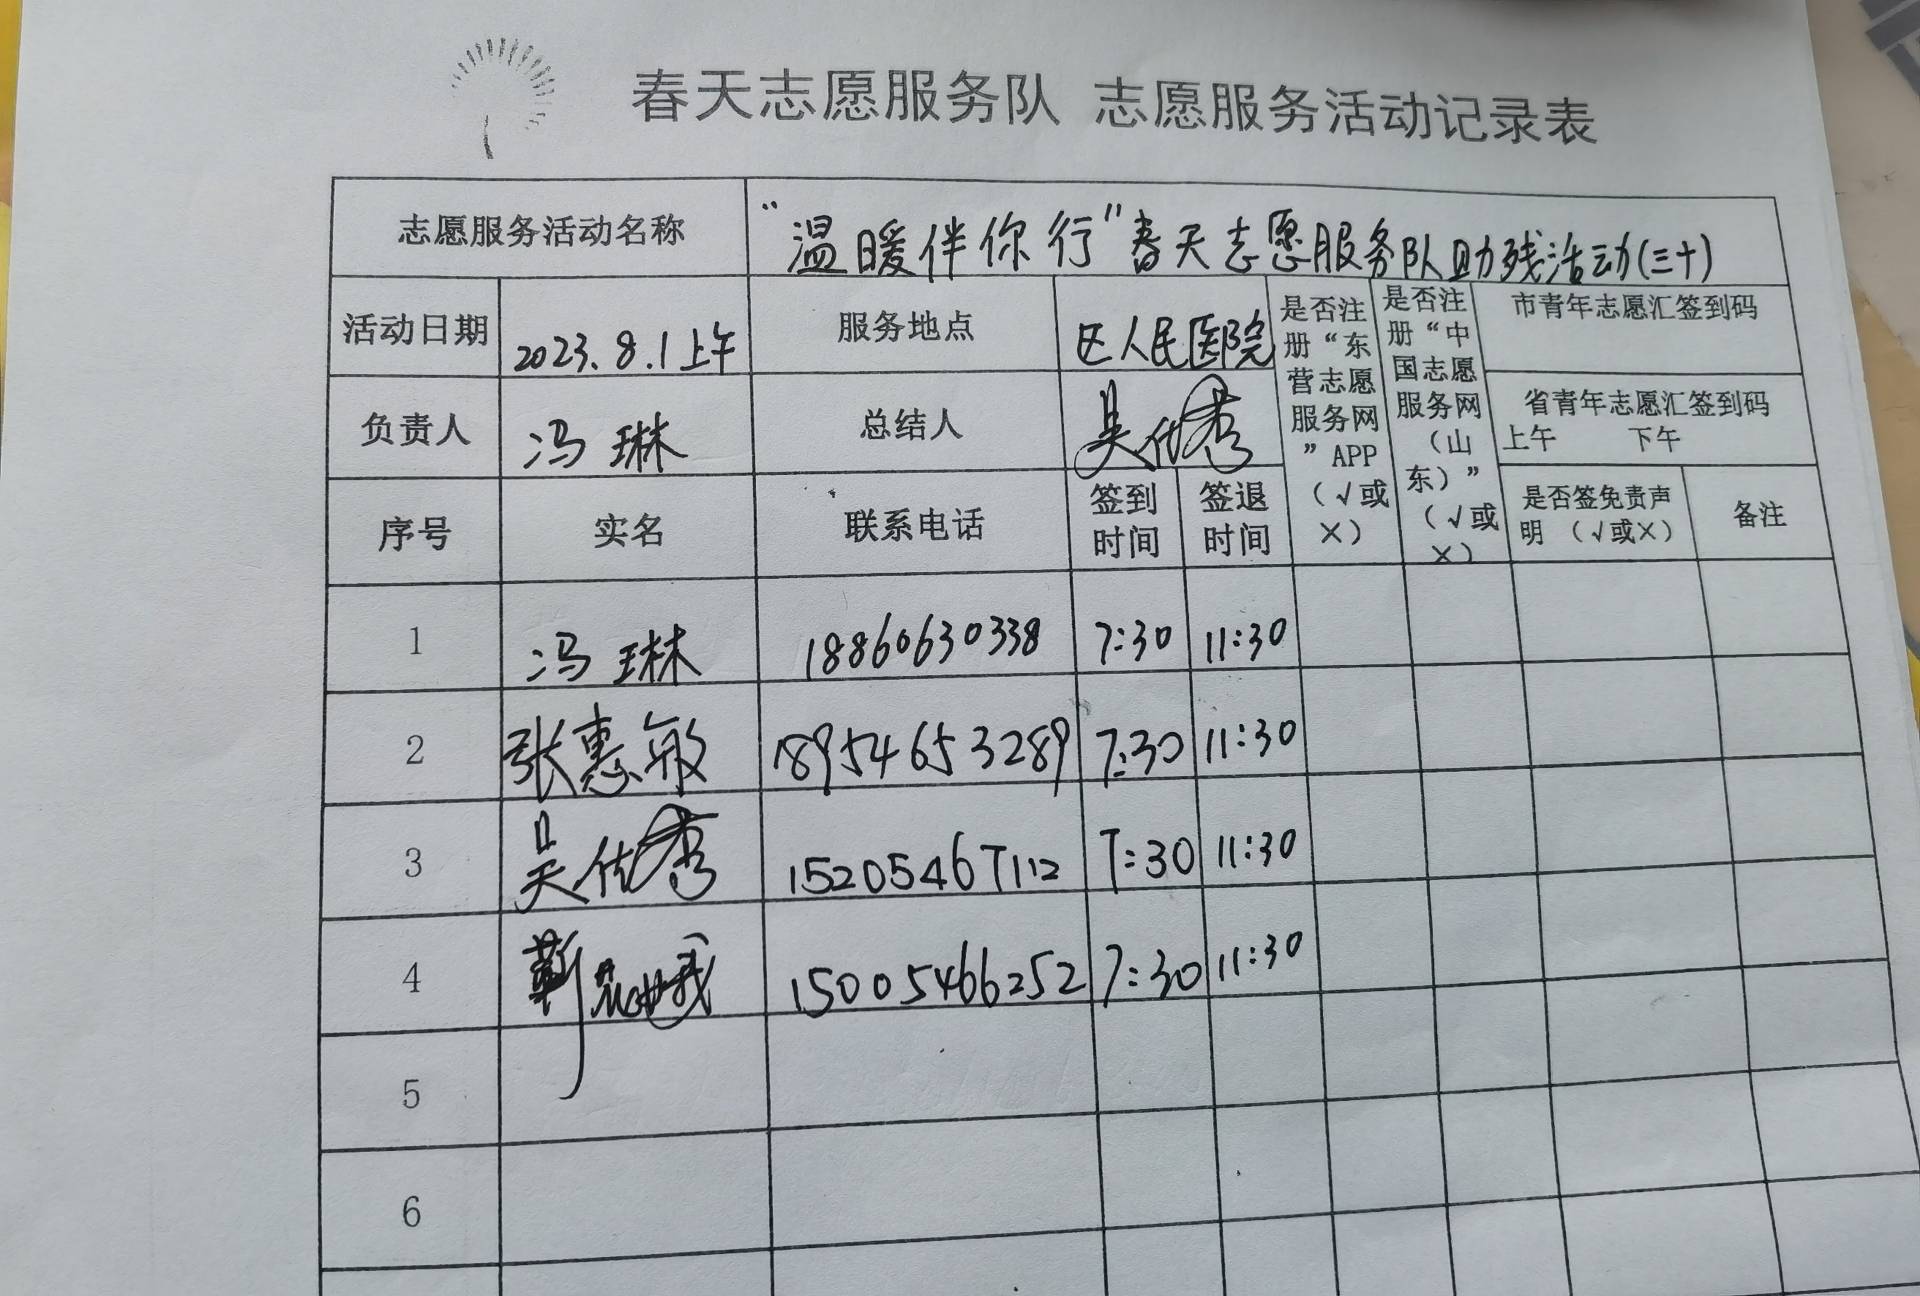 春天志愿服务队 志愿服务活动记录表
志愿服务活动名称 “温暖伴你行”春天志愿服务队助残活动(三十)
活动日期 2023.8.1上午 服务地点 区人民医院
是否注册“东营志愿服务网”APP（√或×）
是否注册“中国志愿服务网（山东）”（√或×）
市青年志愿汇签到码
负责人 冯琳 总结人 吴佑秀
省青年志愿汇签到码
上午 下午
序号 实名 联系电话 签到时间 签退时间 是否签免责声明（√或×） 备注
1 冯琳 18860630338 7:30 11:30
2 张惠敏 18954653289 7:30 11:30
3 吴佑秀 15205467112 7:30 11:30
4 靳 15005466252 7:30 11:30
5
6